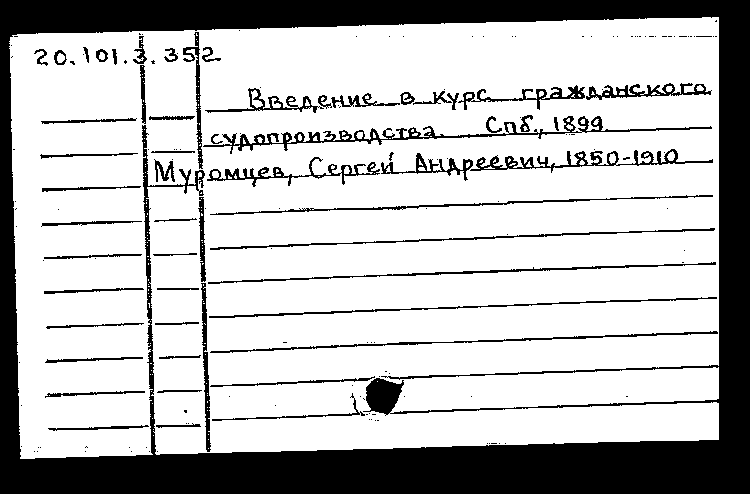 20.101.3.352
Введение в курс гражданского
судопроизводства. Спб., 1899
Муромцев, Сергей Андреевич, 1850-1910